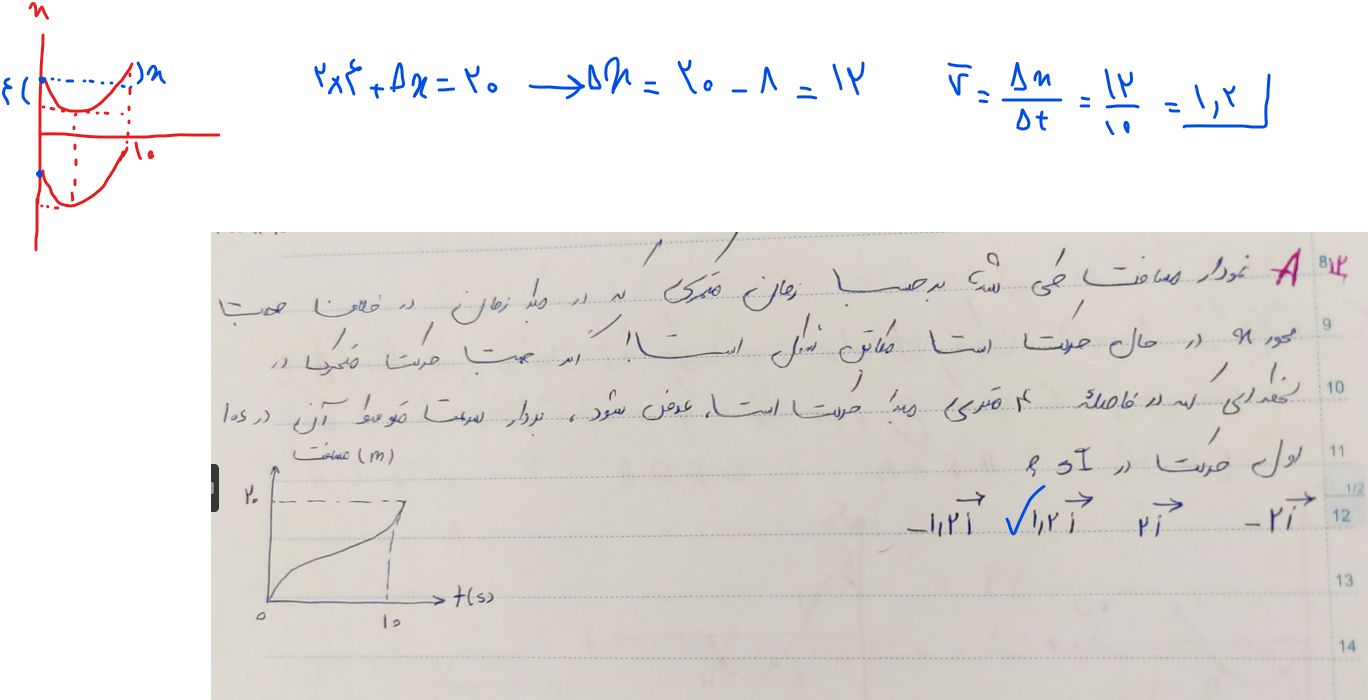 x
۴
x
۱۰
۲×۴ + Δx = ۲۰ → Δx = ۲۰ - ۸ = ۱۲
v̅ = Δx/Δt = ۱۲/۱۰ = ۱,۲
۱۲ A نمودار مسافت طی شده برحسب زمان متحرکی که در مبدأ زمان در خلاف جهت
محور x در حال حرکت است مطابق شکل است! اگر جهت حرکت متحرک در
لحظه‌ای که در فاصلهٔ ۴ متری مبدأ حرکت است، عوض شود، بردار سرعت متوسط آن در ۱۰s
اول حرکت در SI ؟
-۲i⃗ ۲i⃗ ✓۱,۲i⃗ -۱,۲i⃗
مسافت (m)
۲۰
t(s)
۰
۱۰
8
9
10
11
1/2
12
13
14